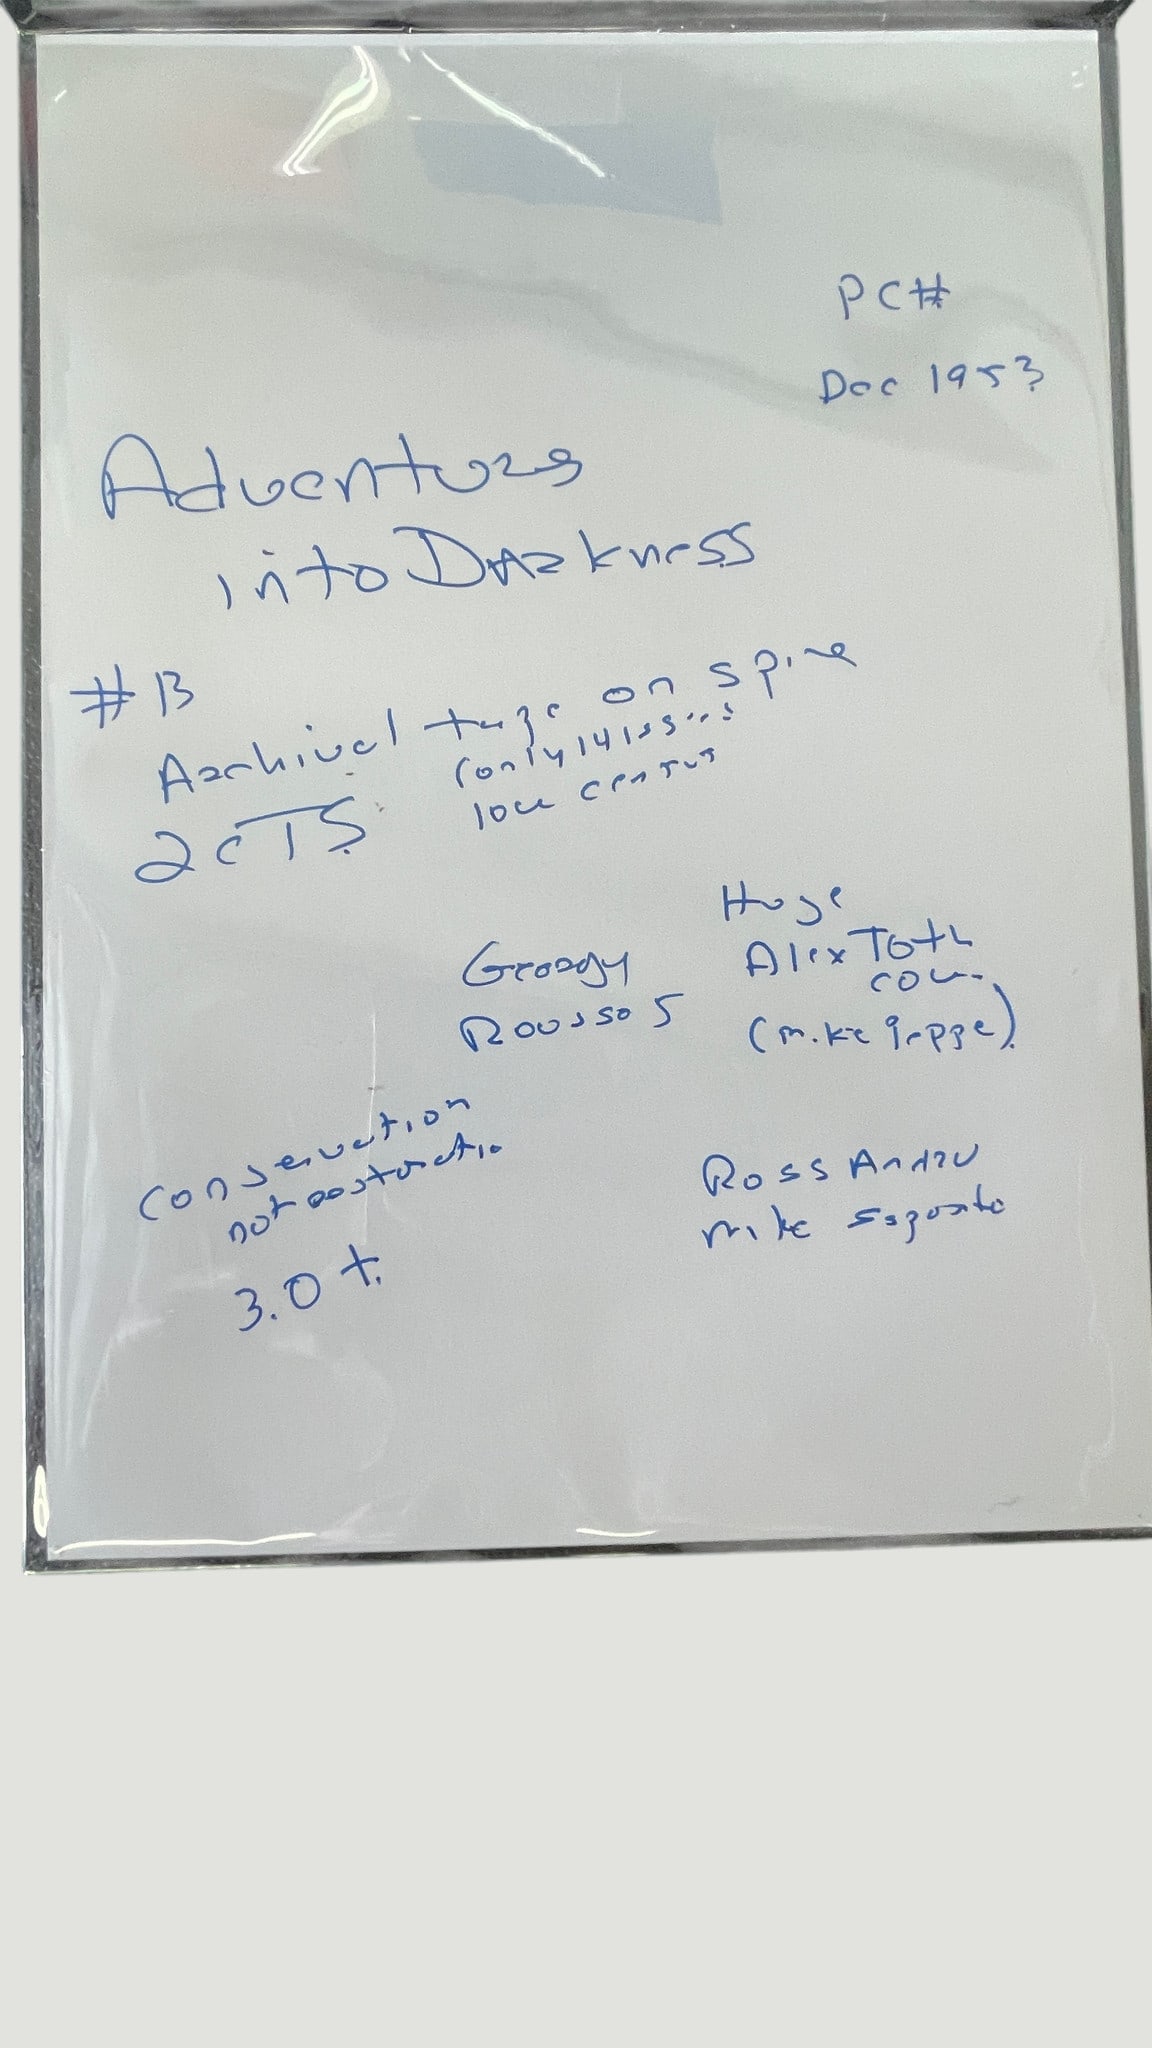 PCH
Dec 1953
Adventures
into Darkness
#13
Archival tape on spine
(only 14 issues
low census
2CTS
Huge
Alex Toth
cover
(Mike Peppe)
Georgy
Roussos
Conservation
not restoratio
Ross Andru
Mike Esposito
3.0 +